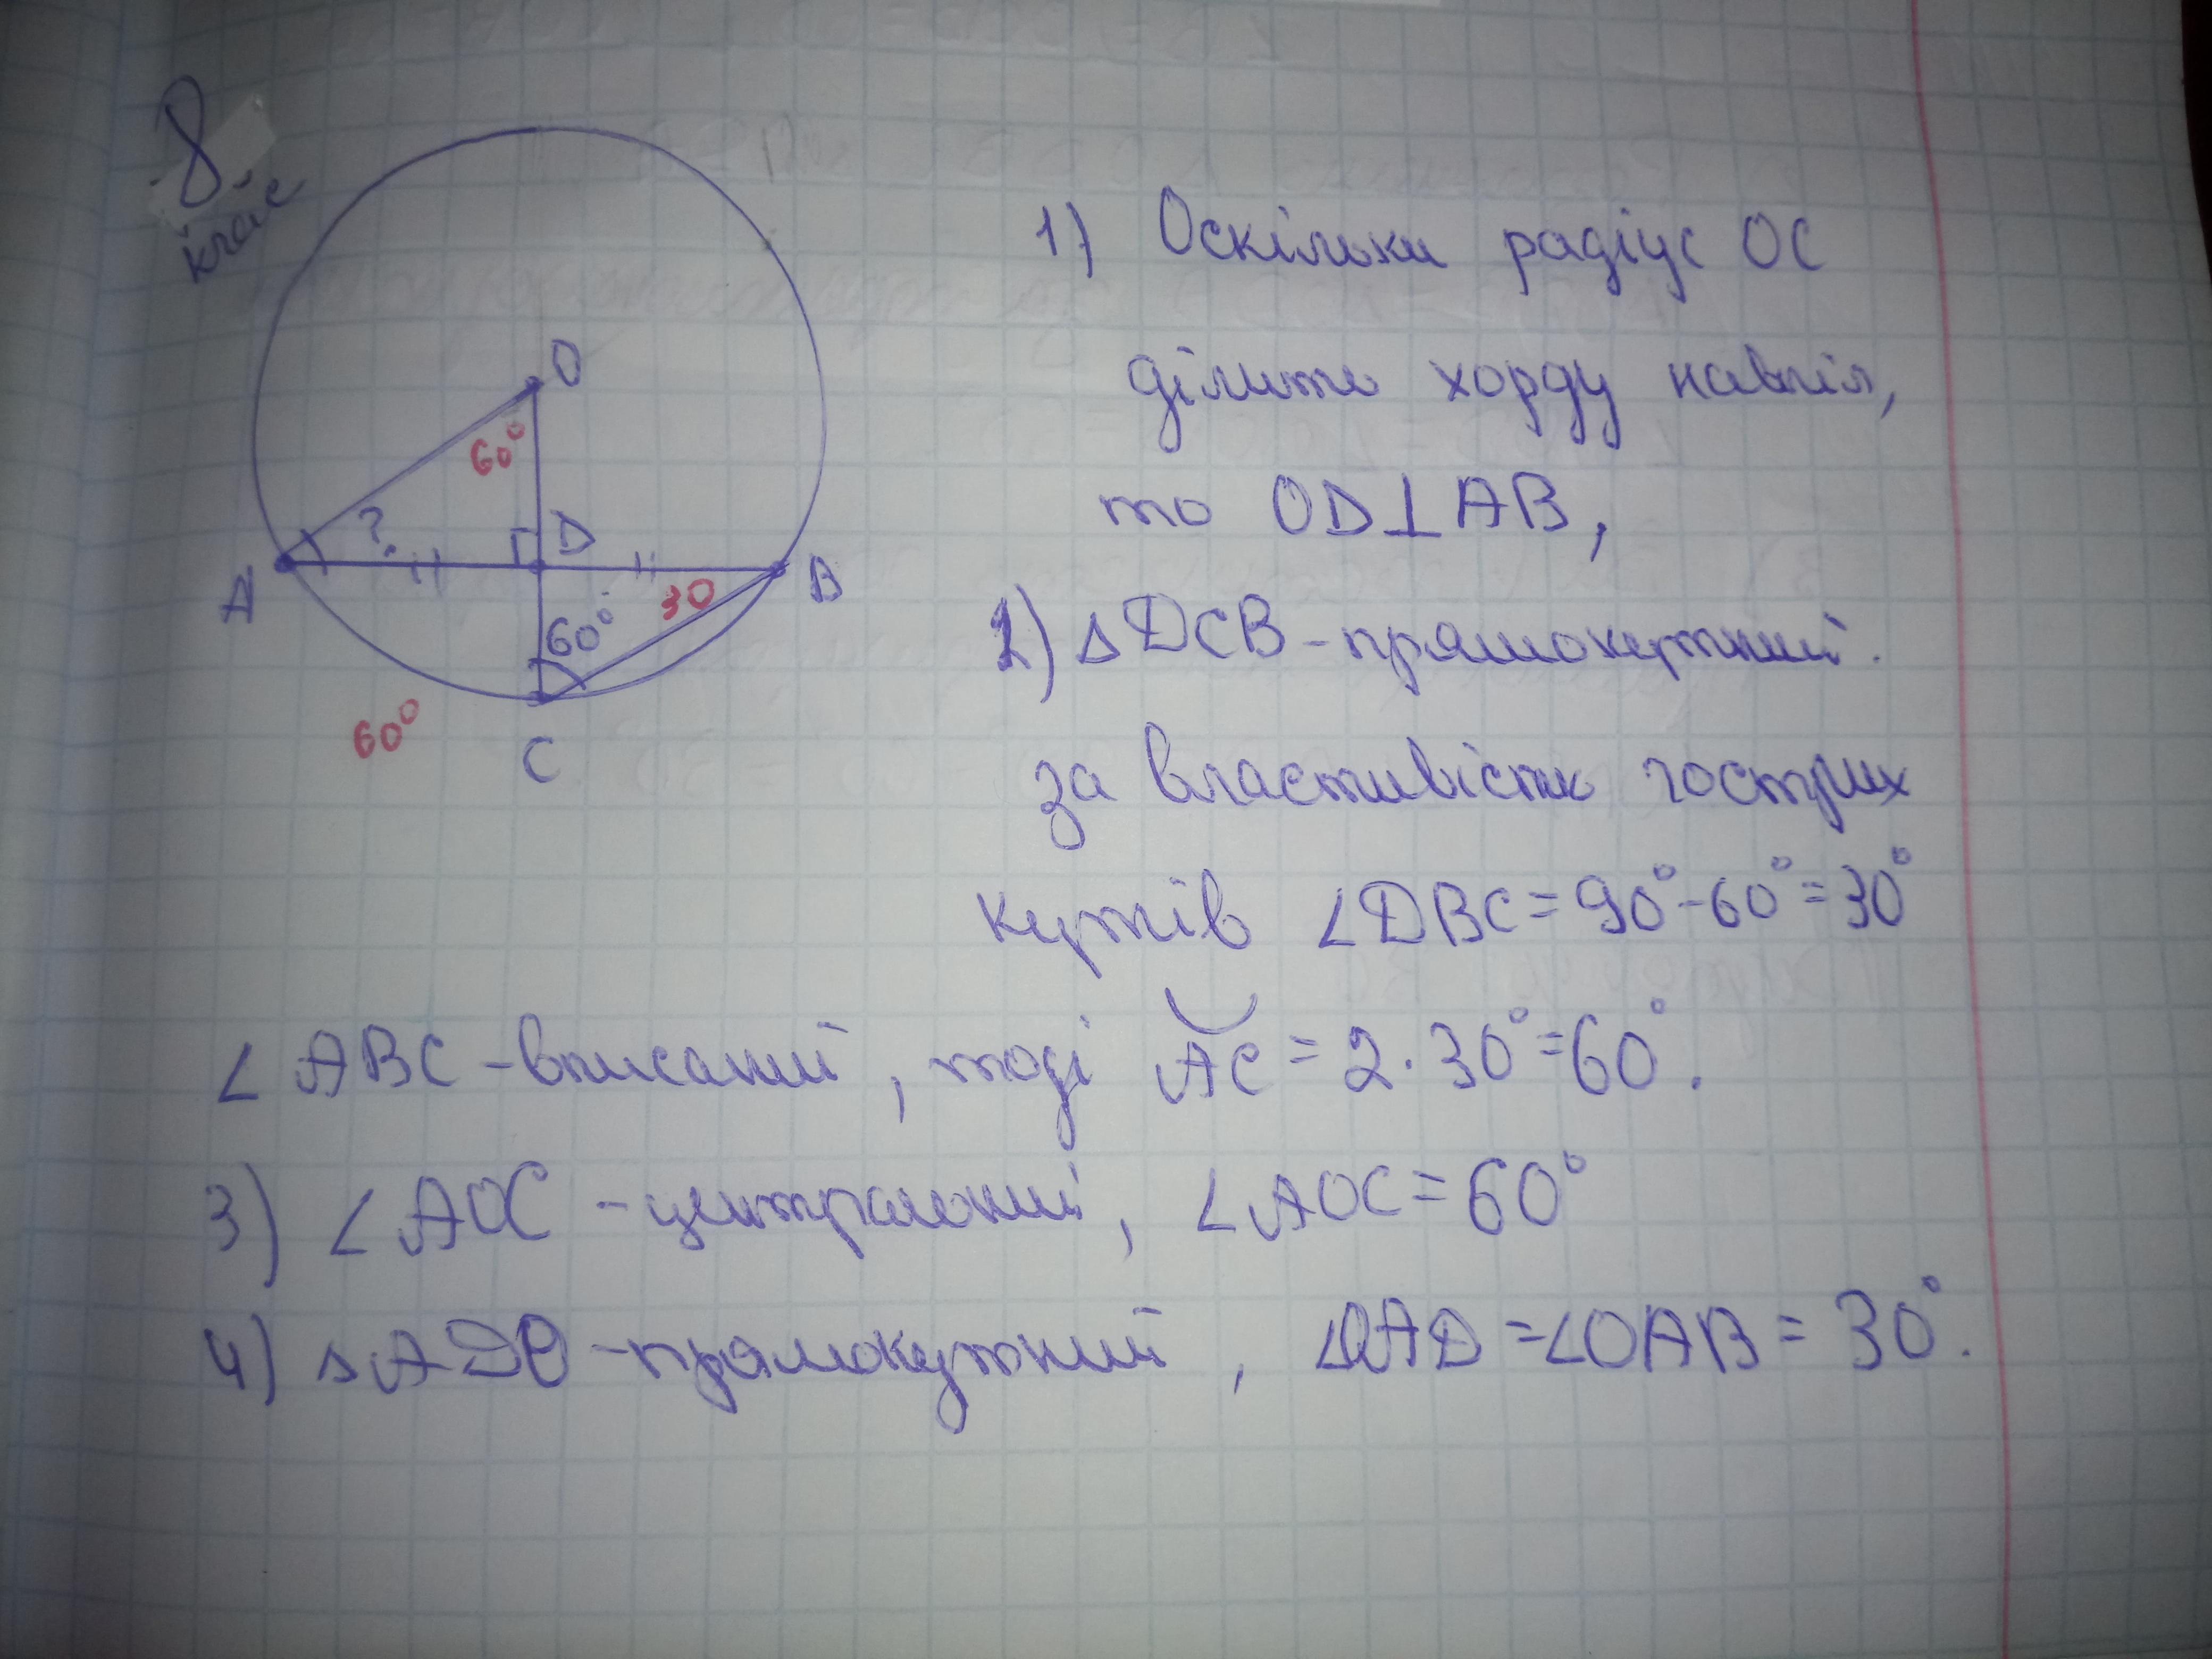 8
клас
O
60°
?
D
A
B
30
60°
60°
C
1) Оскільки радіус OC
ділить хорду навпіл,
то OD⊥AB,
2) △DCB - прямокутний.
за властивістю гострих
кутів ∠DBC = 90° - 60° = 30°
∠ABC - вписаний, тоді ◡AC = 2·30° = 60°.
3) ∠AOC - центральний, ∠AOC = 60°
4) △ADO - прямокутний, ∠OAD = ∠OAB = 30°.